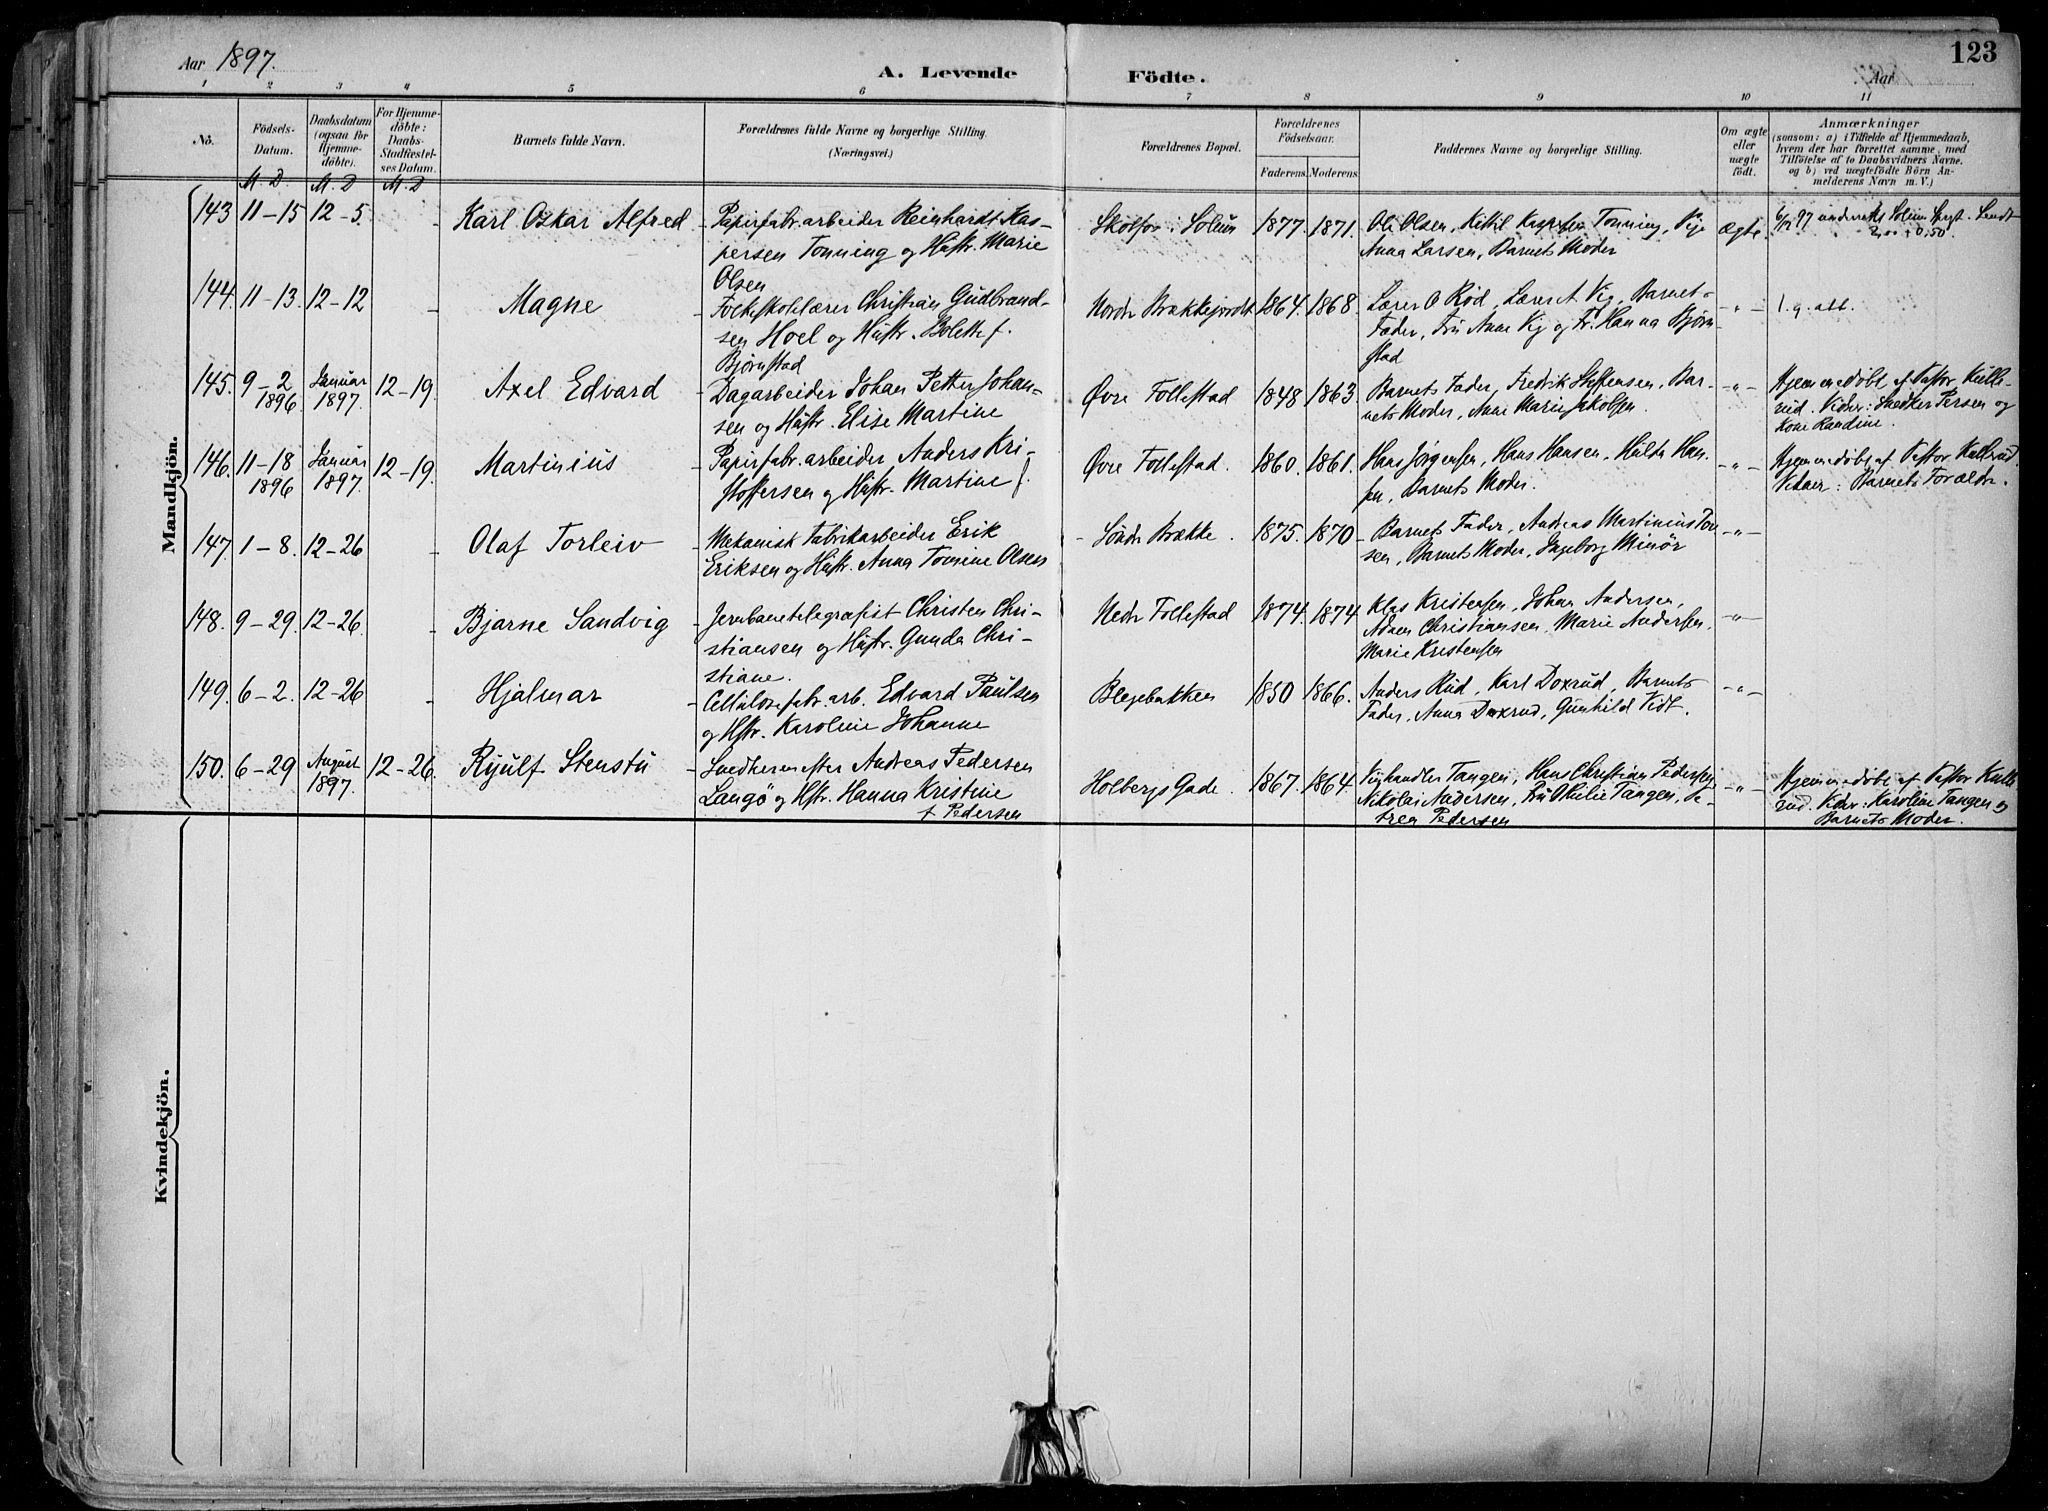 Aar 1897.
A. Levende Födte.
Aar
123
1 2 3 4 5 6 7 8 9 10 11
No.
Födsels-Datum.
M. D.
Daabsdatum (ogsaa for Hjemme-döbte).
M. D
For Hjemme-döbte: Daabs-Stadfæstel-ses Datum.
M. D
Barnets fulde Navn.
Forældrenes fulde Navne og borgerlige Stilling.
(Næringsvei.)
Forældrenes Bopæl.
Forældrenes Födselsaar.
Faderens. Moderens.
Faddernes Navne og borgerlige Stilling.
Om ægte eller uægte födt.
Anmærkninger
(saasom: a) i Tilfælde af Hjemmedaab,
hvem der har forrettet samme, med
Tilföielse af to Daabsvidners Navne.
og b) ved uægtefödte Börn An-
melderens Navn m. V.)
Mandkjön.
143 11-15 12-5. - Karl Oskar Alfred - Papirfabr.arbeider Reinhardt Kas-
persen Tonning og Hustr. Marie
Olsen
Skotfos i Solum 1877. 1871. Ole Olsen, Kittil Kaspersen Tonning,
Anna Larsen, Barnets Moder
Ægte. 6/12 97
144. 11-13. 12-12 - Magne - Folkeskolelærer Christian Gudbrand-
sen Hoel og Hustr. Bolette f.
Bjørnstad
Nordr Brækkejordet 1864. 1868. Lærer O Rød, Lærer A Vig, Barnets
Fader, Fru Anne Vig og Fr. Hanna Bjørn-
stad
-"- 1. g. att.
145. 9-2 1896 Januar 1897. 12-19. Axel Edvard - Dagarbeider Johan Petter Johan-
sen og Hustr. Elise Martine
Øvre Follestad 1848 1863 Barnets Fader, Fredrik Steffensen, Bar-
nets Moder, Anne Marie Jakobsen.
-"- Hjemmedøbt af Pastor Kulle-
rud. Vidner: Snedker Persen og
Kone Randine.
146. 11-18 1896 Januar 1897. 12-19. Martinius - Papirfabr.arbeider Anders Kri-
stoffersen og Hustr. Martine f.
Øvre Follestad. 1860. 1861. Hans Jørgensen, Hans Hansen, Hulda Han-
sen, Barnets Moder.
-"- Hjemmedøbt af Pastor Kullerud.
Vidner: Barnets Forældre.
147. 1-8. 12-26 - Olaf Torleiv - Mekanisk Fabrikarbeider Erik
Eriksen og Hustr. Anna Tomine Olsen
- Søndr Brække. 1875. 1870 - Barnets Fader, Andreas Martinius Ton-
sen, Barnets Moder, Ingeborg Minør
-"-
148. 9-29. 12-26. - Bjarne Sandvig - Jernbanetelegrafist Christen Chri-
stiansen og Hustr. Gunda Chri-
stiane.
Nedr Follestad 1874. 1874 Klas Kristensen, Johan Andersen,
Adam Christiansen, Marie Andersen,
Marie Kristensen
-"-
149. 6-2. 12-26 - Hjalmar - Cellulosefabr.arb. Edvard Paulsen
og Hstr. Karoline Johanne
Blegebakken 1850 1866. Anders Rud, Karl Doxrud, Barnets
Fader, Anna Doxrud, Gunhild Vidt.
-"-
150. 6-29 August 1897. 12-26. Ryulf Stenstu - Snedkermester Andreas Pedersen
Langø og Hstr. Hanna Kristine
f Pedersen
Holbergs Gade. 1867. 1864. Tangen, Hans Christian Pedersen
Nikolai Andersen, Fru Othilie Tangen, Pe-
trea Pedersen
-"- Hjemmedøbt af Pastor Kulle-
rud. Vidner: Karoline Tangen og
Barnets Moder.
Kvindekjön.